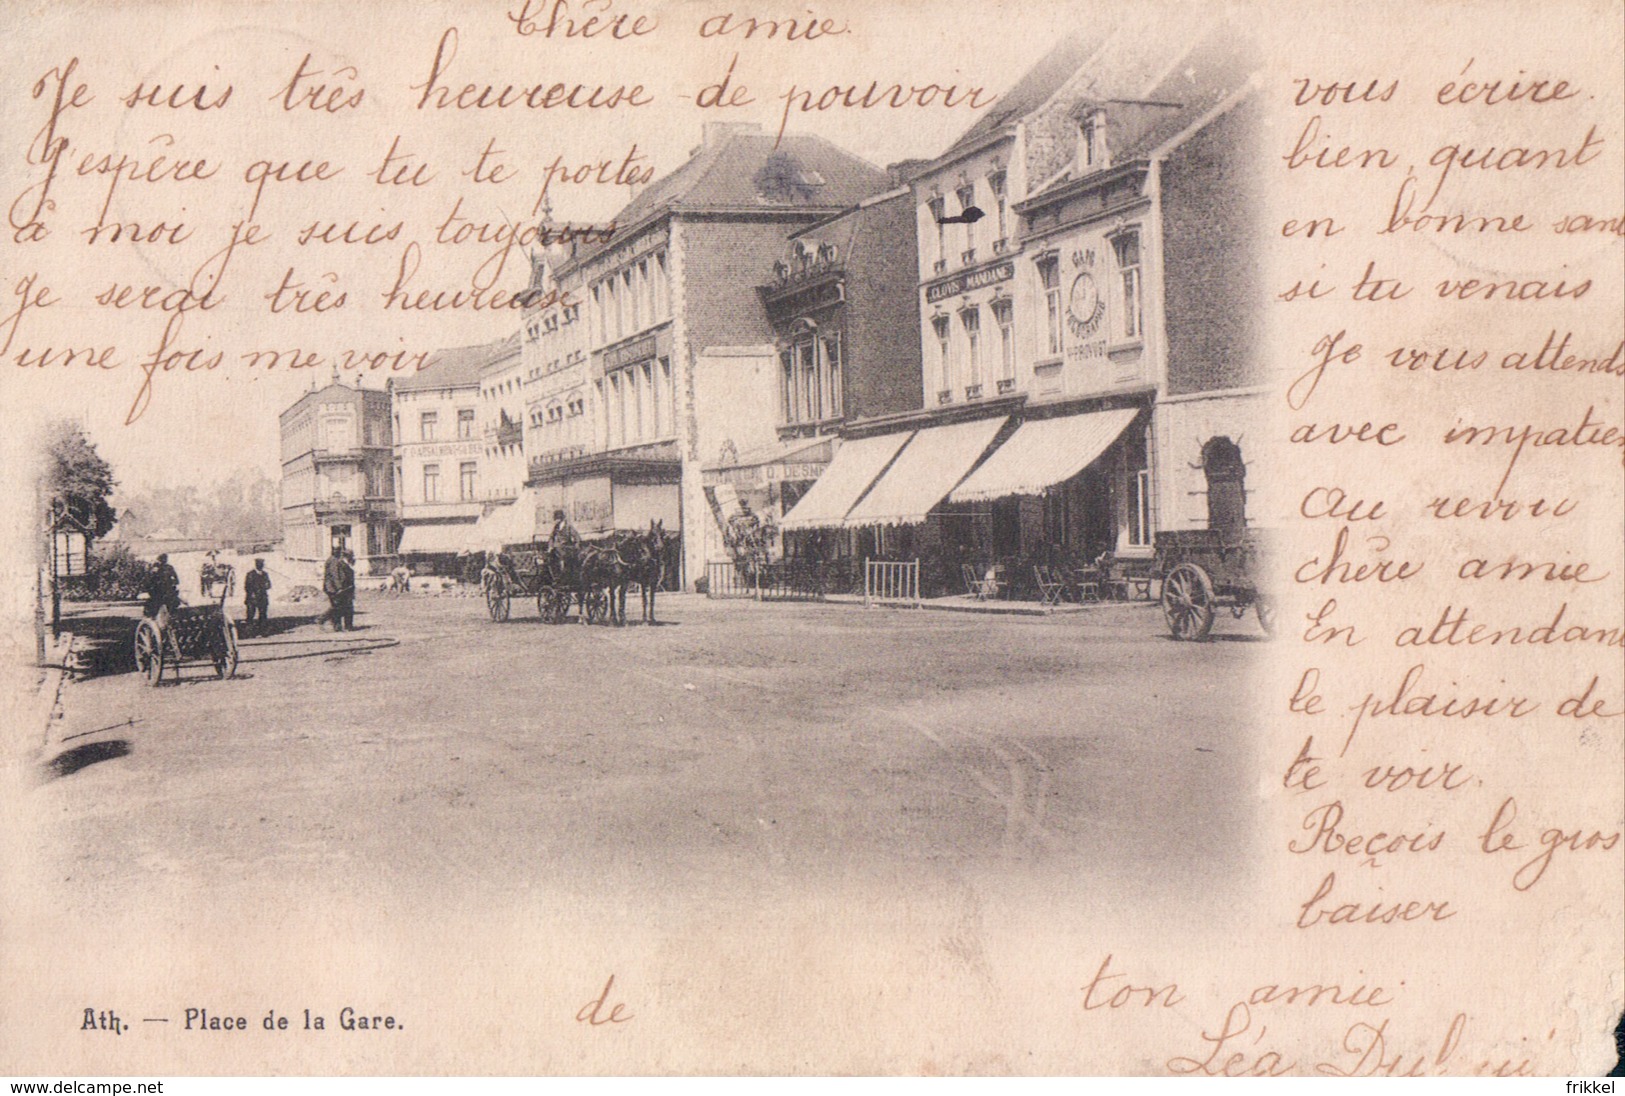 Chêre amie.
Je suis très heureuse de pouvoir vous écrire.
J'espêre que tu te portes bien, quant
à moi je suis toujours en bonne sant
Je serai três heureuse si tu venais
une fois me voir Je vous attends
avec impatien
Au revoir
chêre amie
En attendant
le plaisir de
te voir.
Reçois le gros
baiser
de ton amie
Léa
CLOVIS MANDIANE
CAFÉ
TÉLÉGRAPHE
PROVOST
Ath. — Place de la Gare.
www.delcampe.net
frikkel